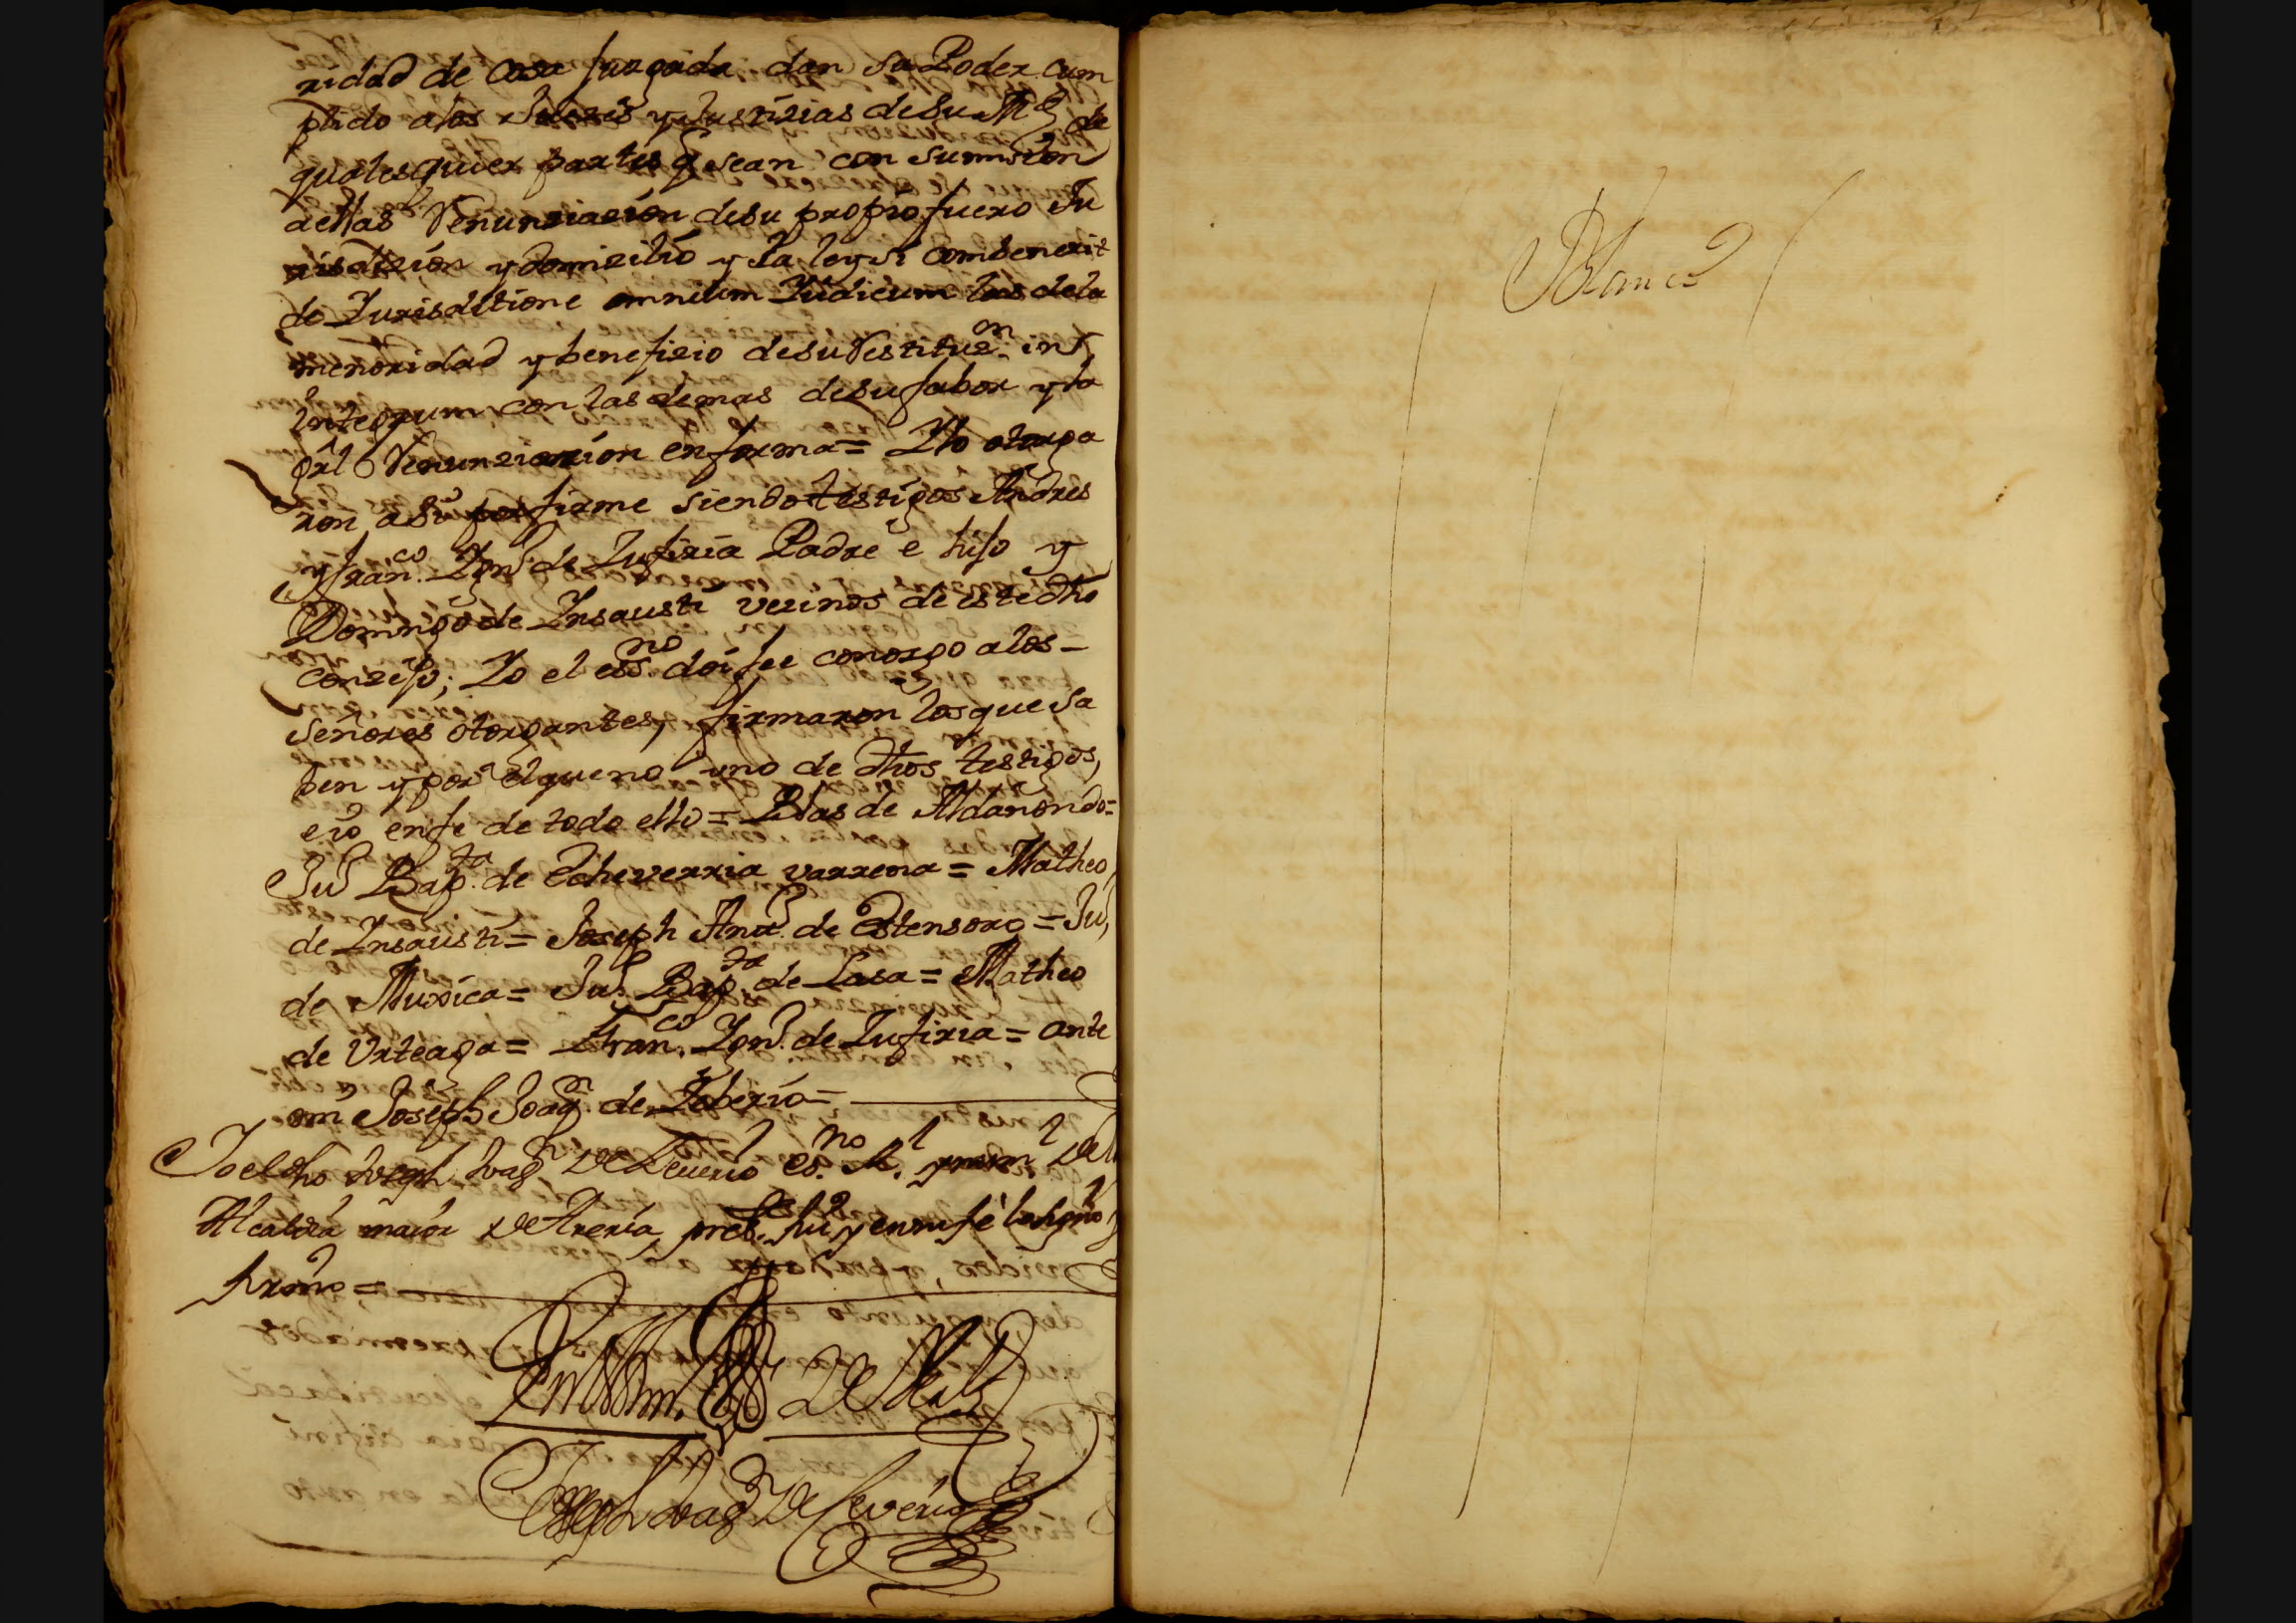 ridad de Cosa Juzgada dan su Poder cum
plido a los Juezes y Justizias de su Mg.d de
qualesquier partes q sean con sumision
a ellas Renunziazion de su propio fuero Ju
risdizion y domizilio y la ley si combenerit
de Jurisditione omnium Judicum las de la
menoridad y benefizio de su Restituz.on in
Integrum, con las demas de su fabor y la
gral Renunziazion en forma = Y lo otorga
ron a su firme siendo testigos Andres
y fran.co Ign.o de Zufiria Padre e hijo y
Domingo de Insausti vezinos de este dho
conzejo; Yo el ess.no doi fee conozco a los
señores otorgantes, firmaron los que sa
ben y por el que no uno de dhos testigos,
e io en fe de todo ello = Blas de Aldañondo =
Ju.o Bap.ta de Echeverria varrena = Matheo
de Insausti = Joseph Ant.o de Estensoro = Ju.o
de Muxica = Ju.o Bap.ta de Lasa = Matheo
de Urteaga = Fran.co Ign.o de Zufiria = ante
mi Joseph Joaq.n de Zeberio =
Yo el dho Joseph Joaq.n de Zeverio es.no R.l y num.l de la
Alcaldia maior de Areria, pres.te fui, y en mi fé lo signo, y
firmo =
En testim.o de Verd.
Joseph Joaq.n de Zeverio
Blanco